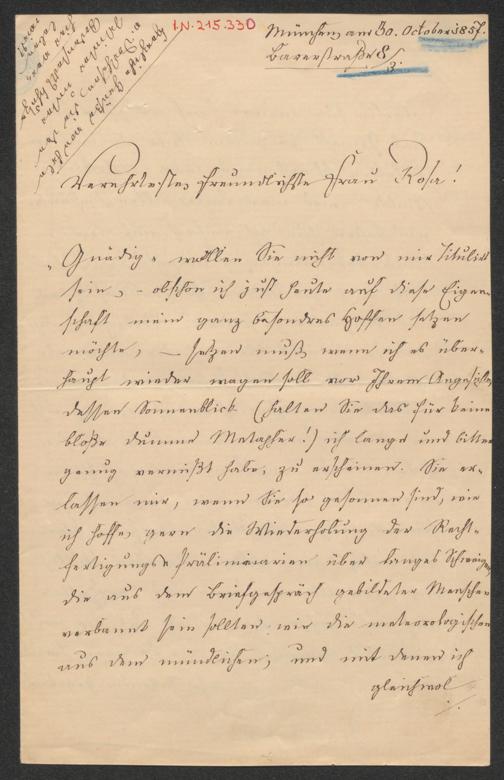 I.N. 215.330
München am 30. October 1857.
Bayerstraße 8/3.
Verehrteste, freundlichste Frau Rosa!
„Gnädig“ wollen Sie nicht von mir titulirt
sein, – obschon ich just heute auf diese Eigen-
schaft mein ganz besondres Hoffen setzen
möchte, – setzen muß, wenn ich es über-
haupt wieder wagen soll vor Ihrem Angesichte,
dessen Sonnenblick (halten Sie das für keine
bloße dumme Metapher!) ich lange und bitter
genug vermißt habe, zu erscheinen. Sie er-
lassen mir, wenn Sie so gesonnen sind, wie
ich hoffe, gern die Wiederholung der Recht-
fertigungs-Präliminarien über langes Schweigen,
die aus dem Briefgespräch gebildeter Menschen
verbannt sein sollten wie die meteorologischen
aus dem mündlichen, und mit denen ich
gleichwol